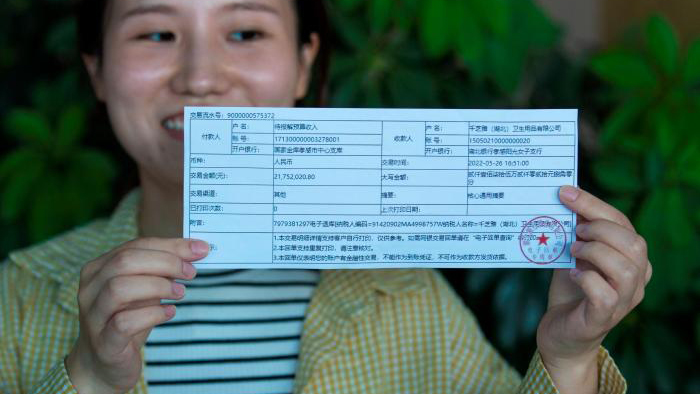 交易流水号：9000000575372
付款人 户 名： 待报解预算收入 收款人 户 名： 千芝雅（湖北）卫生用品有限公司
账 号： 171300000003278001 账 号： 15050210000000020
开户银行： 国家金库孝感市中心支库 开户银行： 湖北银行孝感阳光女子支行
币种： 人民币 交易时间： 2022-05-26 16:51:00
交易金额(元)： 21,752,020.80 大写金额： 贰仟壹佰柒拾伍万贰仟零贰拾元捌角零分
交易渠道： 其他 摘要： 核心通用摘要
已打印次数： 0 上次打印日期：
附言： 7979381297电子退库|纳税人编码=91420902MA4998757W纳税人名称=千芝雅（湖北）卫生用品有限公司
1.本交易明细详情支持客户自行打印，仅供参考。如需网银交易回单请在“电子回单查询”
2.本回单支持重复打印，请注意核对。
3.本回单仅表明您的账户有金融性交易，不能作为到账凭证，不可作为收款方发货依据。